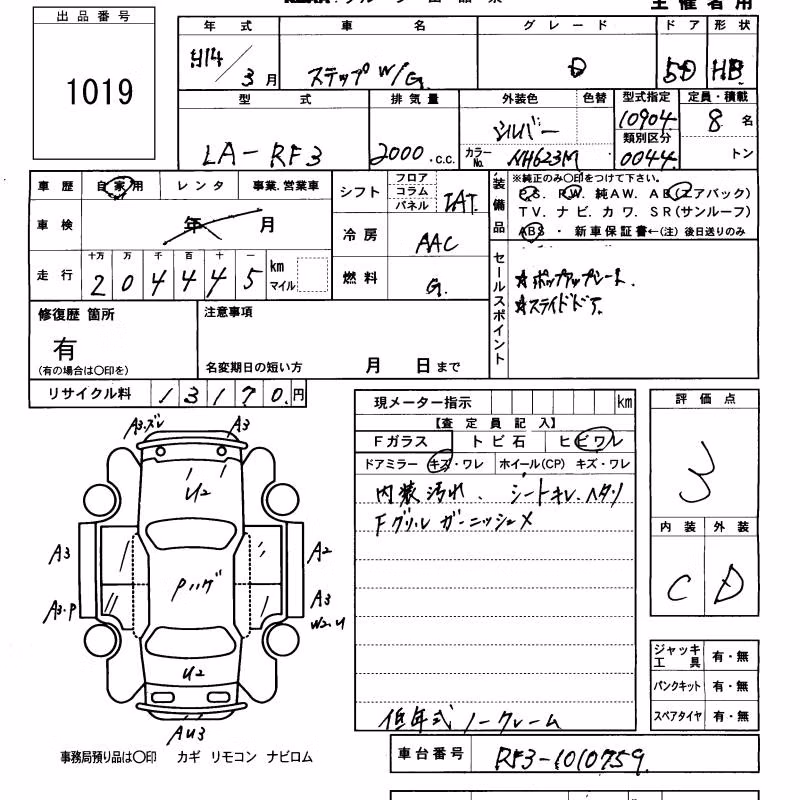 主催者用
出品番号
1019
年式 車名 グレード ドア 形状
H14/3月 ステップW/G. D 5D HB
型式 排気量 外装色 色替 型式指定 定員・積載
LA-RF3 2000.c.c. シルバー 10904 8名
カラーNo. NH623M 類別区分 0044 トン
車歴 自家用 レンタ 事業.営業車
車検 年 月
走行 十万 万 千 百 十 一
204445 km マイル
シフト フロア コラム パネル IAT.
冷房 AAC
燃料 G.
装備品 ※純正のみ〇印をつけて下さい。
P.S. R.W. 純AW. A.B(エアバック)
TV. ナビ. カワ. SR(サンルーフ)
ABS ・ 新車保証書←(注) 後日送りのみ
セールスポイント
☆ポップアップシート.
☆スライドドア.
修復歴 箇所
有
(有の場合は〇印を)
注意事項
名変期日の短い方 月 日まで
リサイクル料 13170.円
現メーター指示 km
【査定員記入】
Fガラス トビ石 ヒビワレ
ドアミラー キズ・ワレ ホイール(CP) キズ・ワレ
内装汚れ、シートキレ、ヘタリ
Fグリル ガーニッシュメ
低年式 ノークレーム
評価点
3
内装 外装
C D
A3.ズレ A3
U2
A3 A2
Pハゲ
A3.P A3
W2.U
U2
AU3
ジャッキ工具 有・無
パンクキット 有・無
スペアタイヤ 有・無
事務局預り品は〇印 カギ リモコン ナビロム
車台番号 RF3-1010759